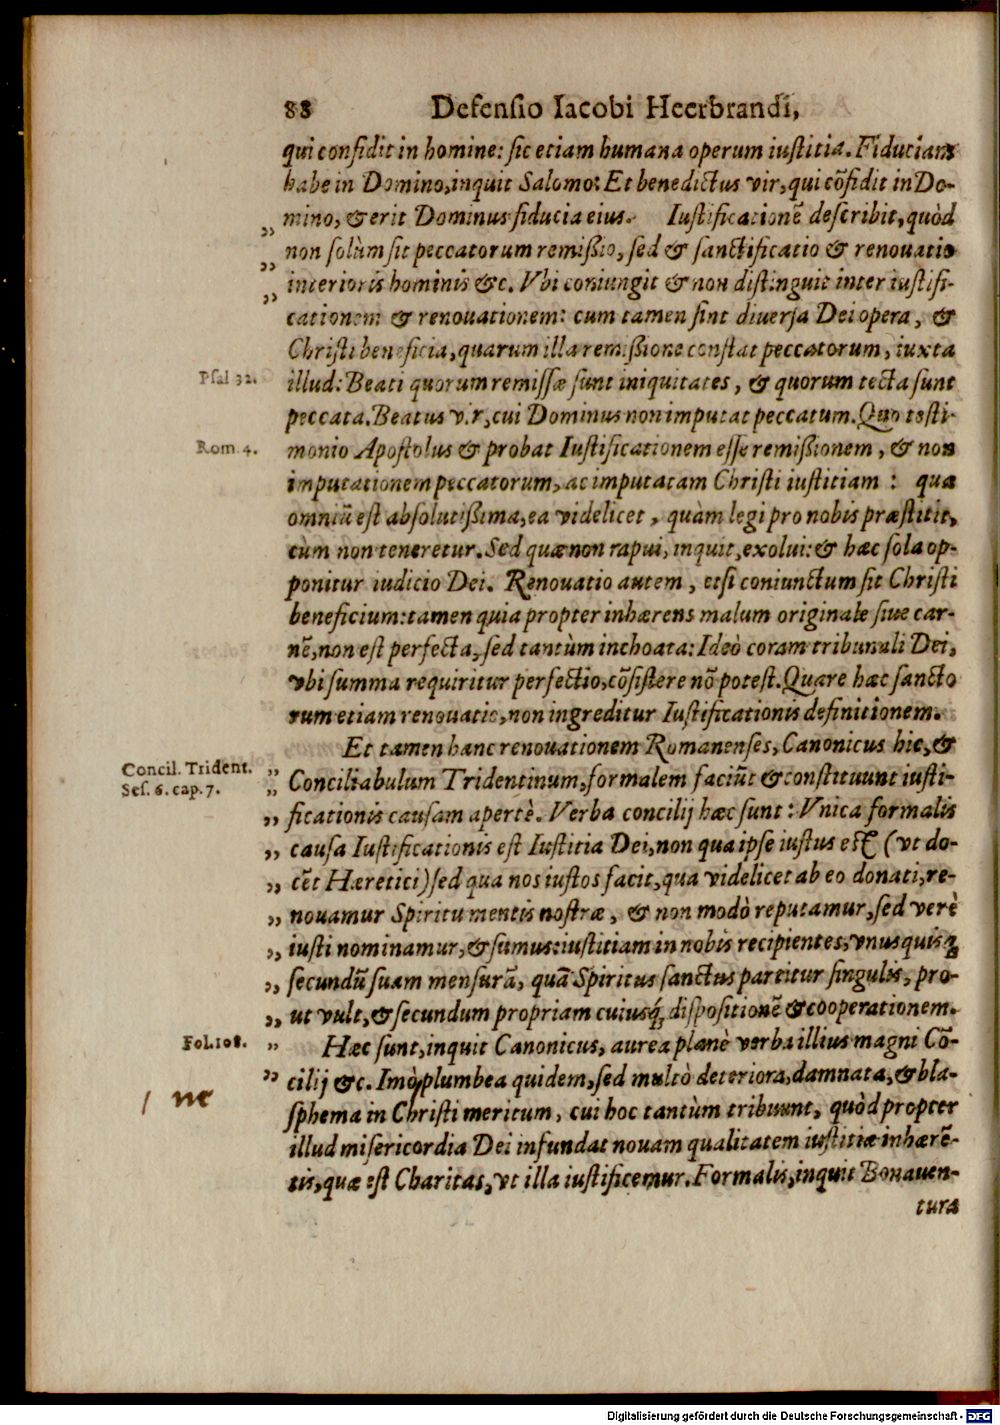 88 Defensio Iacobi Heerbrandi,
qui confidit in homine: sic etiam humana operum iustitia. Fiduciam
habe in Domino, inquit Salomo: Et benedictus vir, qui cõfidit in Do-
mino, & erit Dominus fiducia eius. Iustificationẽ describit, quòd
„ non solùm sit peccatorum remißio, sed & sanctificatio & renouatio
„ interioris hominis &c. Vbi coniungit & non distinguit inter iustifi-
„ cationem & renouationem: cum tamen sint diuersa Dei opera, &
Christi beneficia, quarum illa remißione constat peccatorum, iuxta
Psal 32. illud: Beati quorum remissæ sunt iniquitates, & quorum tecta sunt
peccata. Beatus vir, cui Dominus non imputat peccatum. Quo testi-
Rom 4. monio Apostolus & probat Iustificationem esse remißionem, & non
imputationem peccatorum, ac imputatam Christi iustitiam : quæ
omniũ est absolutißima, ea videlicet, quam legi pro nobis præstitit,
cùm non teneretur. Sed quæ non rapui, inquit, exolui: & hæc sola op-
ponitur iudicio Dei. Renouatio autem, etsi coniunctum sit Christi
beneficium: tamen quia propter inhærens malum originale siue car-
nẽ, non est perfecta, sed tantùm inchoata: Ideò coram tribunali Dei,
vbi summa requiritur perfectio, cõsistere nõ potest. Quare hæc sancto
rum etiam renouatio, non ingreditur Iustificationis definitionem.
Et tamen hanc renouationem Romanenses, Canonicus hic, &
Concil. Trident. „ Conciliabulum Tridentinum, formalem faciũt & constituunt iusti-
Ses. 6. cap. 7. „ ficationis causam apertè. Verba concilij hæc sunt: Vnica formalis
„ causa Iustificationis est Iustitia Dei, non qua ipse iustus est (vt do-
„ cẽt Hæretici) sed qua nos iustos facit, qua videlicet ab eo donati, re-
„ nouamur Spiritu mentis nostræ, & non modò reputamur, sed verè
„ iusti nominamur, & sumus: iustitiam in nobis recipientes, vnusquisq;
„ secundũ suam mensurã, quã Spiritus sanctus partitur singulis, pro-
„ ut vult, & secundum propriam cuiusq́; dispositionẽ & cooperationem.
Fol. 108. „ Hæc sunt, inquit Canonicus, aurea planè verba illius magni Cõ-
„ cilij &c. Imò plumbea quidem, sed multò deteriora, damnata, & bla-
| ne sphema in Christi meritum, cui hoc tantùm tribuunt, quòd propter
illud misericordia Dei infundat nouam qualitatem iustitiæ inhærẽ-
tis, quæ est Charitas, vt illa iustificemur. Formalis, inquit Bonauen-
tura
Digitalisierung gefördert durch die Deutsche Forschungsgemeinschaft - DFG